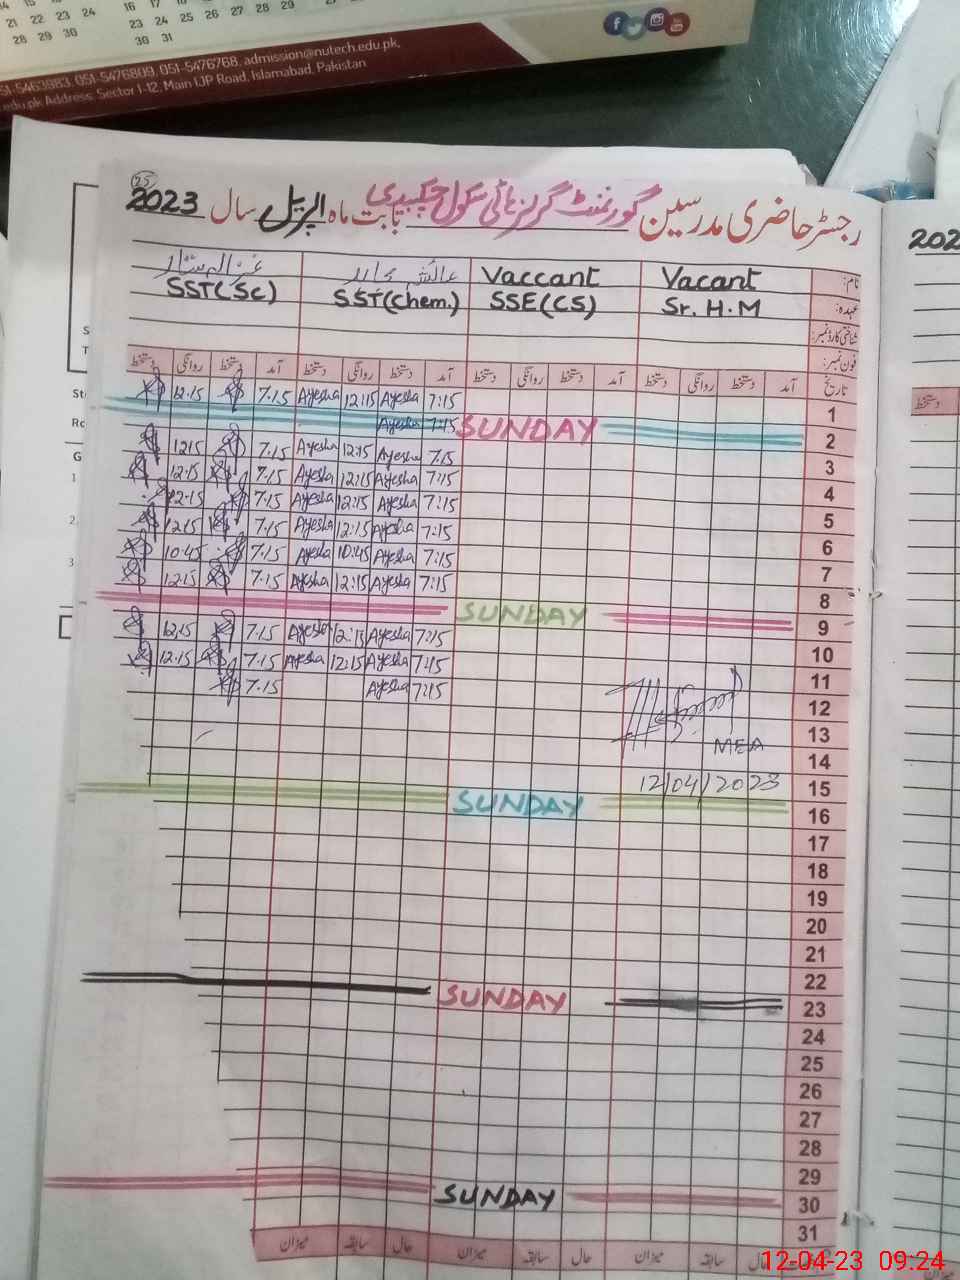 21 22 23 24
28 29 30
16 17 18
23 24 25 26 27 28 29
30 31
051-5463983, 051-5476809, 051-5476768, admission@nutech.edu.pk,
edu.pk Address: Sector I-12, Main IJP Road, Islamabad, Pakistan
25
رجسٹر حاضری مدرسین گورنمنٹ گرلز ہائی سکول بابت ماہ اپریل سال 2023
202
نام: Vacant Vaccant
عہدہ: Sr. H.M SSE(CS) SST(Chem.) SST(Sc)
شناختی کارڈ نمبر:
فون نمبر:
تاریخ آمد دستخط روانگی دستخط آمد دستخط روانگی دستخط آمد دستخط روانگی دستخط آمد دستخط روانگی دستخط
دستخط
1 7:15 Ayesha 12:15 Ayesha 7.15 12.15
2 SUNDAY 7:15 Ayesha
3 7.15 Ayesha 12:15 Ayesha 7.15 12.15
4 7:15 Ayesha 12:15 Ayesha 7.15 12.15
5 7:15 Ayesha 12:15 Ayesha 7.15 12.15
6 7:15 Ayesha 12:15 Ayesha 7.15 12.15
7 7:15 Ayesha 10:45 Ayesha 7.15 10.45
8 7:15 Ayesha 12:15 Ayesha 7.15 12.15
9 SUNDAY
10 7:15 Ayesha 12:15 Ayesha 7.15 12.15
11 7:15 Ayesha 12:15 Ayesha 7.15 12.15
12 7:15 Ayesha 7.15
13
MEA
14
15 12/04/2023
16 SUNDAY
17
18
19
20
21
22
23 SUNDAY
24
25
26
27
28
29
30 SUNDAY
31
حال سابقہ میزان حال سابقہ میزان حال سابقہ میزان
میزان
12-04-23 09:24